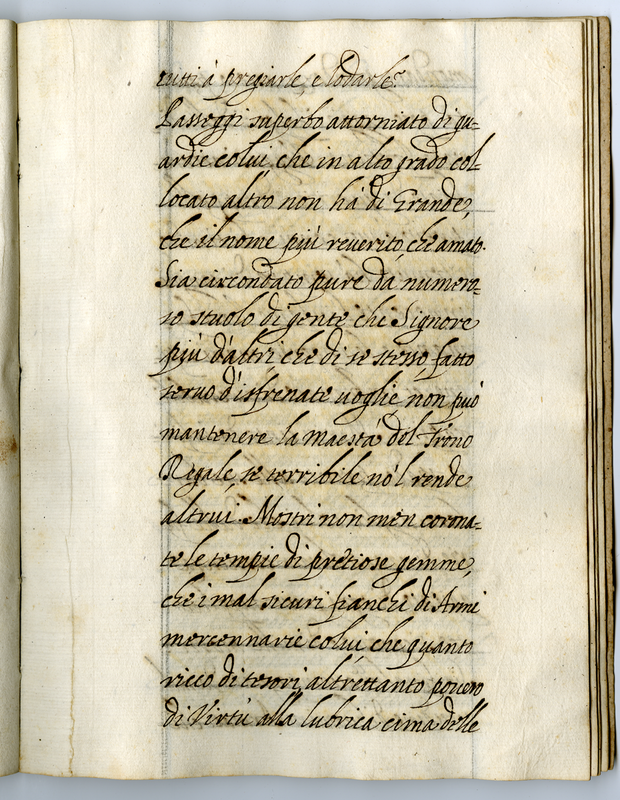 tutti à pregiarle, e lodarle?
Passeggi superbo attorniato di gu-
ardie colui, che in alto grado col-
locato altro non hà di Grande,
che il nome più reverito, che amato.
Sia circondato pure dà numero-
so stuolo di gente chi Signore
più d'altri che di se stesso fatto
servo d'isfrenate voglie, non può
mantenere la Maestà del Trono
Regale, se terribile nò'l rende
altrui. Mostri non men corona-
te le tempie di pretiose gemme,
che i mal sicuri fianchi di Armi
mercennarie colui che quanto
ricco di tesori altrettanto povero
di Virtù alla lubrica cima delle